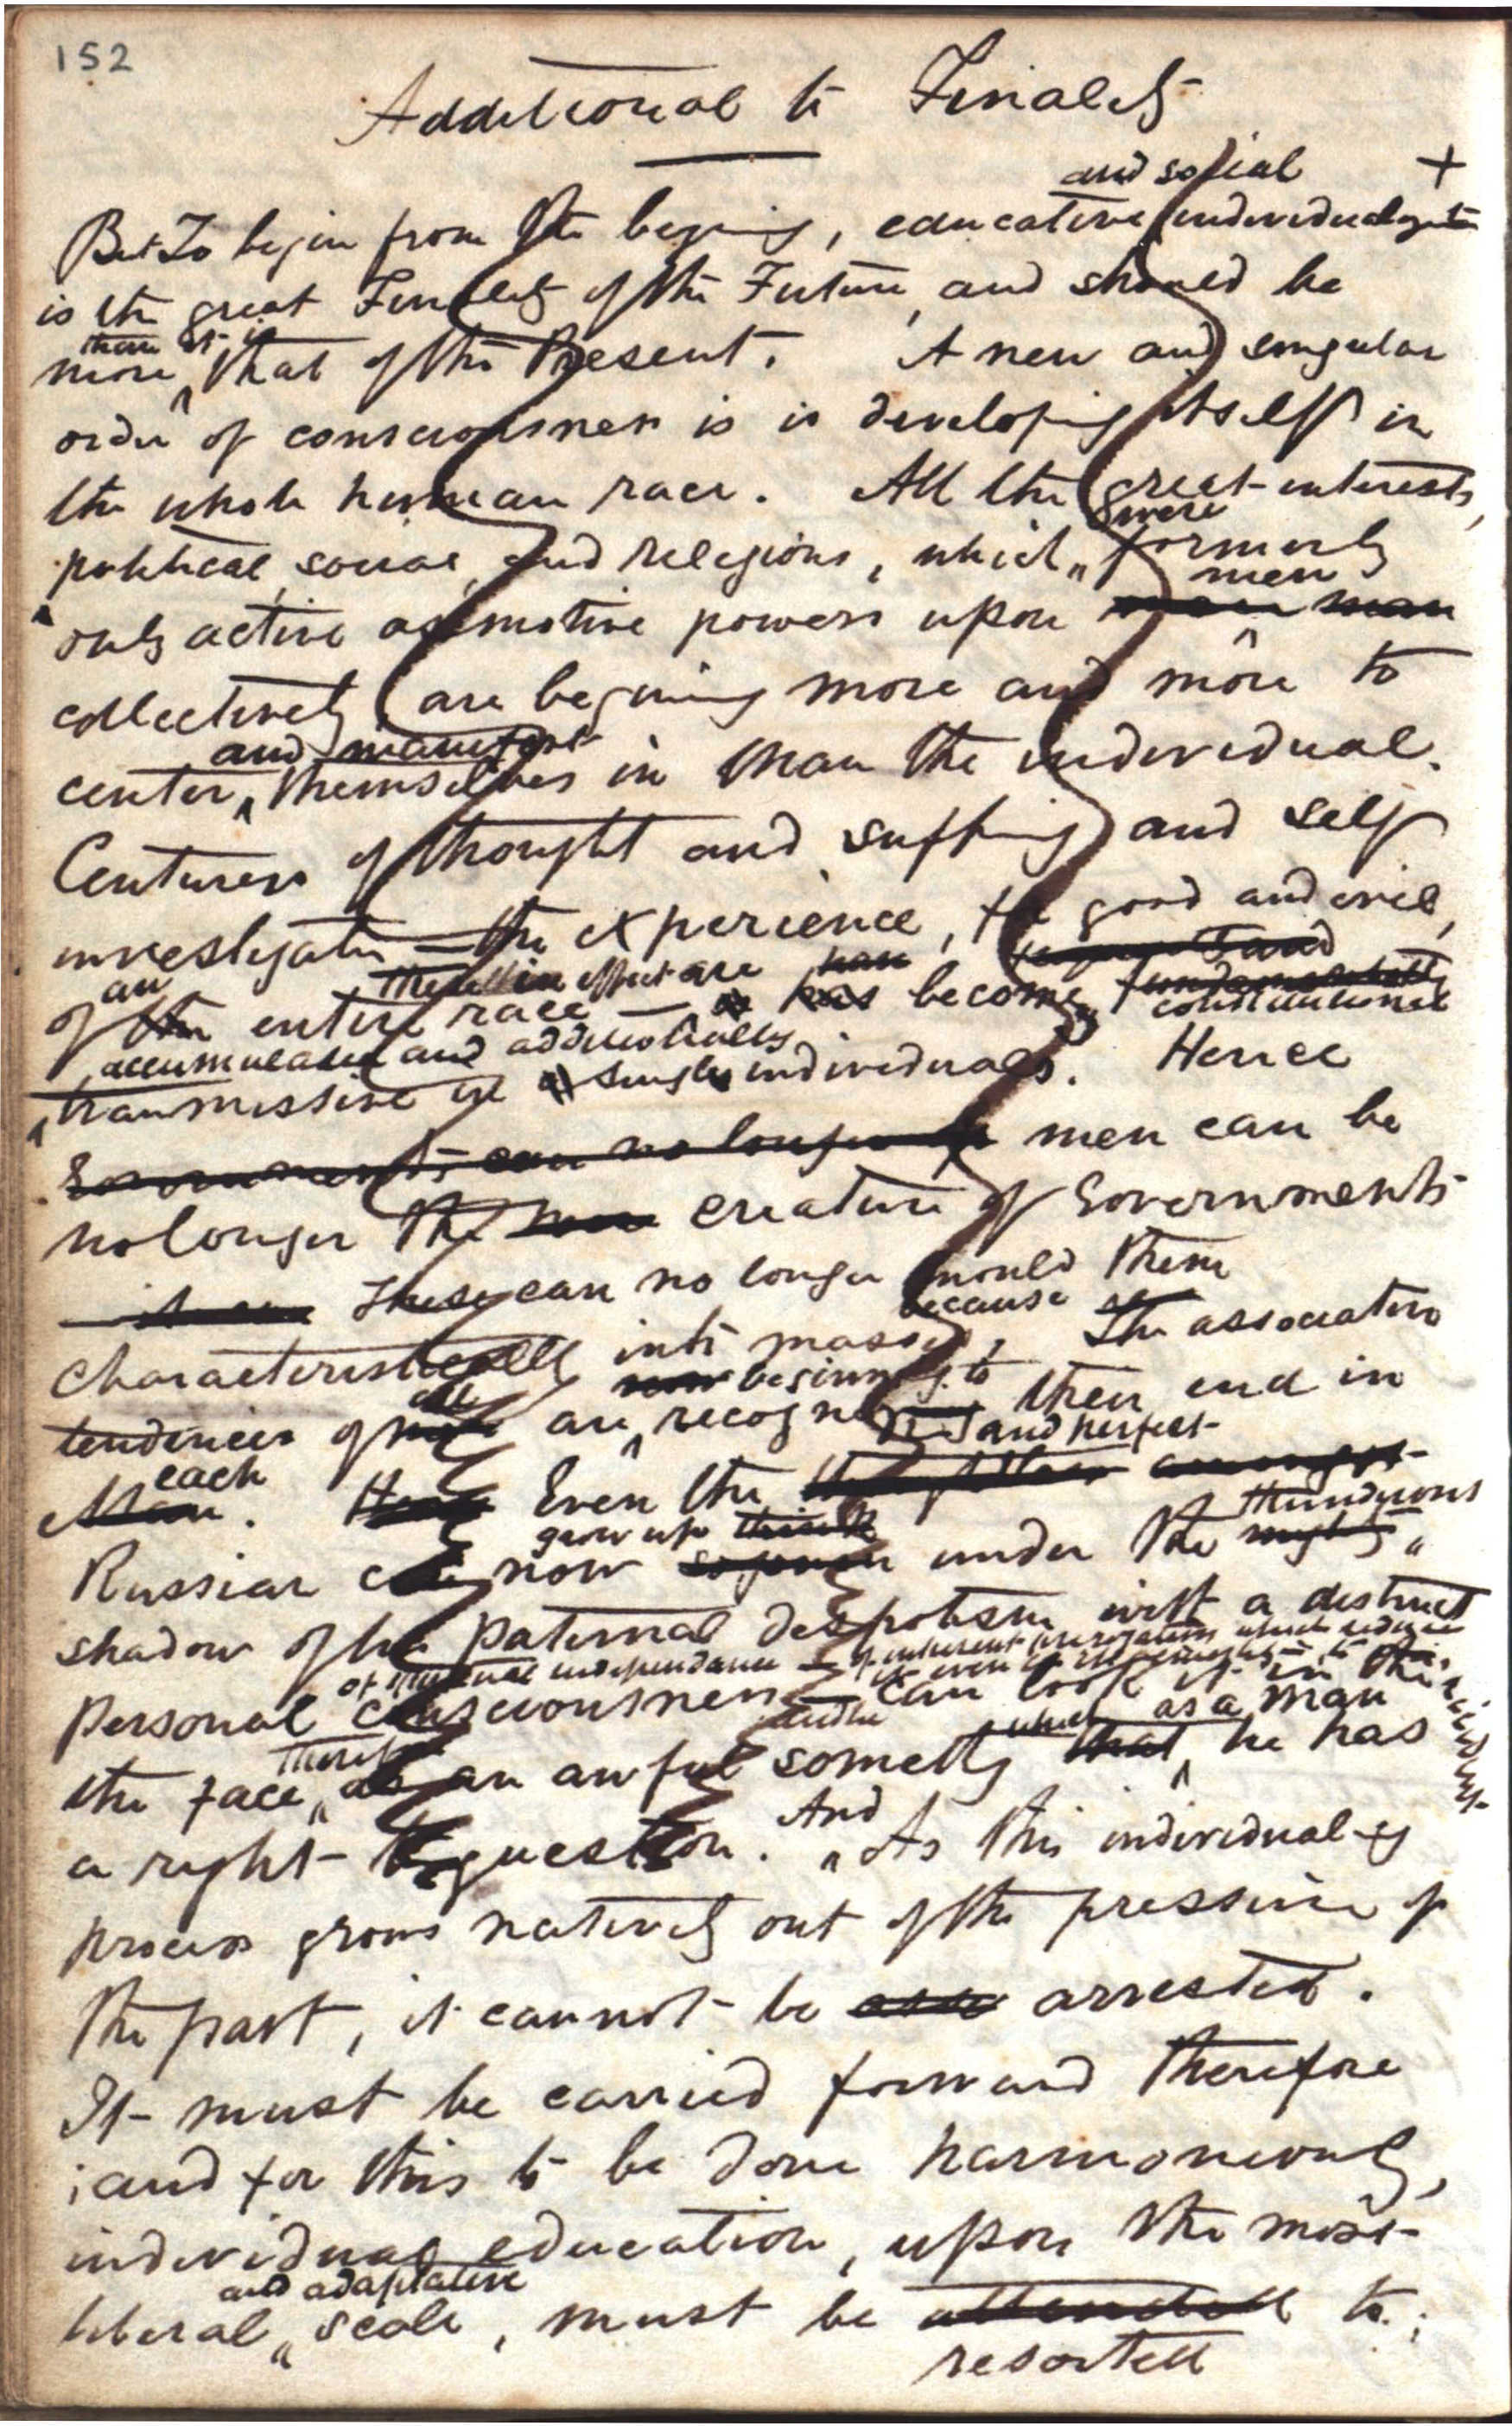 152
Additional to Finality
and social +
But To begin from the begining, educative individualization
is the great Finality of the Future, and should be
than it is
more that of the Present. A new and singular
order of consciousness is is developing itself in
the whole human race. All the great interests,
were
political, social, and religious, which formerly
men
only active as motive powers upon man
collectively, are begining more and more to
and manifest
center themselves in man the individual.
Centuries of thought and suffering and self
investigation — the experience, the good and evil,
an these in effect are have
of the entire race — has become fundamentally
constitutional
accumulated and additionally
transmissive in a single individuals. Hence
Governments can no longer men can be
no longer the mere creature of Governments
— These can no longer mould them
because
characteristically into masses, The associative
all now begining to
tendencies of are recognized their end in
each and perfect
Man. Even the
grow up thunderous
Russian can now under the mighty
shadow of his paternal despotism with a distinct
of spiritual independance — of inherent prerogatives which
personal consciousness can look it in
as a man
therefore which
the face, as an awful something that he has
And
a right to question. As this individual-ey
process grows natively out of the pressure of
the past, it cannot be arrested.
It must be carried forward therefore
; and for this to be done harmoniously,
individual education, upon the most
and adaptative
liberal scale, must be attended to;
resorted